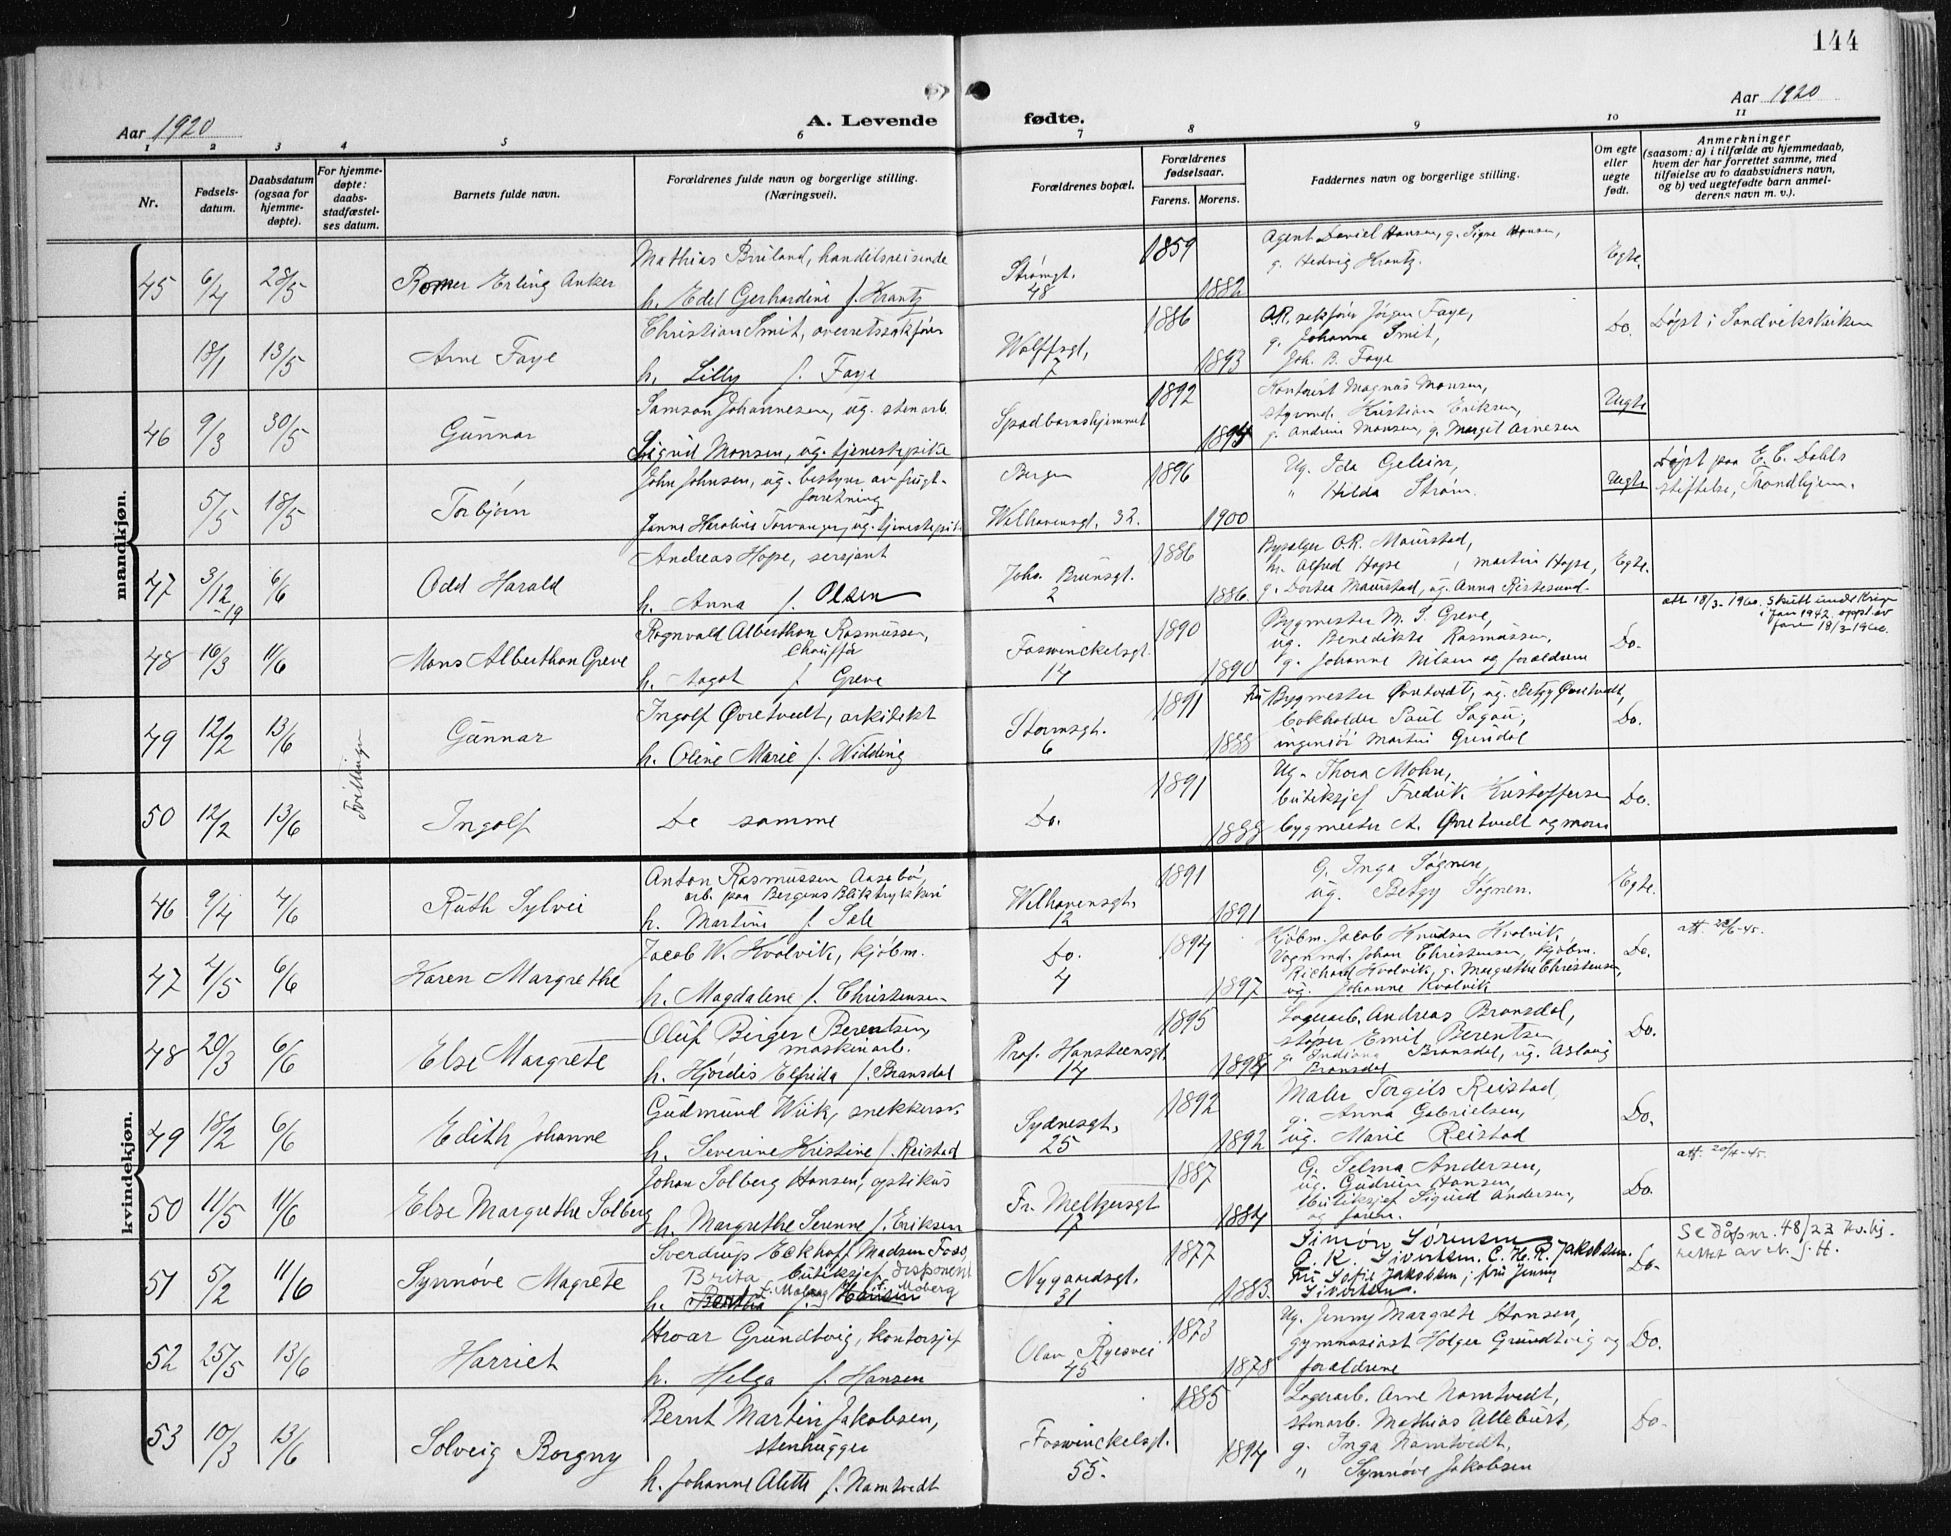 144
Aar 1920
A. Levende
fødte.
Aar 1920
1 2 3 4 5 6 7 8 9 10 11
Nr.
Fødsels-
datum.
Daabsdatum
(ogsaa for
hjemme-
døpte).
For hjemme-
døpte:
daabs-
stadfæstel-
ses datum.
Barnets fulde navn.
Forældrenes fulde navn og borgerlige stilling.
(Næringsvei).
Forældrenes bopæl.
Forældrenes
fødselsaar.
Farens. Morens.
Faddernes navn og borgerlige stilling.
Om egte
eller
uegte
født.
Anmerkninger
(saasom: a) i tilfælde av hjemmedaab,
hvem der har forrettet samme, med
tilføielse av to daabsvidners navn,
og b) ved uegtefødte barn anmel-
derens navn m. v.).
mandkjøn.
45 6/4 28/5 Romer Erling Anker
Mathias Briland, handelsreisende
h. Edel Gerhardine f. Krantz
Strømgt.
48
1859
1882
Agent Daniel Hansen, g. Signe Hansen,
g. Hedvig Krantz.
Egte.
18/1 13/5 Arne Faye
Christian Smit, overretssakfører
h. Lilly f. Faye
Wolffsgt.
7
1886
1893
O.R. sakfører Jörgen Faye,
g. Johanne Smit,
Joh. B. Faye
Do.
Döpt i Sandvikskirken
46 9/3 30/5 Gunnar
Samson Johannesen, ug. stenarb.
Sigrid Monsen, ug. tjenestepike
Spædbarnshjemmet
1892
1894
Kontorist Magnus Monsen,
styrmd. Kristian Eriksen,
g. Andrine Monsen, g. Margit Arnesen
Uegte
5/5 18/5 Torbjörn
John Johnsen, ug. bestyrer av frugt-
forretning
Janna Haroline Torvanger, ug. tjenestepike
Bergen
Welhavensgt. 32.
1896
1900
Ug. Ida Gelein,
" Hilda Ström.
Uegte
Döpt paa E. C. Dahls
stiftelse, Trondhjem.
47 3/12 -19 6/6 Odd Harald
Andreas Hope, sersjant
h. Anna f. Olsen
Johs. Brunsgt.
2
1886
1886.
Bysælger O.R. Maurstad,
hr. Alfred Hope, martin Hope,
g. Dortea Maurstad, ug. Anna Ristesund.
Egte.
48 16/3 11/6 Mons Alberthon Greve
Rognvald Alberthon Rasmussen,
Chauffør
h. Aagot f. Greve
Foswinckelsgt.
14
1890
1890
Bygmester M. S. Greve,
ug. Benedikte Rasmussen,
g. Johanne Nilsen og forældrene
Do.
att 18/3-1960. Skutt under krigen
i jan 1942. oppt. av
faren 18/3-1960.
49 12/2 13/6 Tvillinger Gunnar
Ingolf Øvretvedt, arkitekt
h. Oline Marie f. Widding
Stormsgt.
6
1891
1888
Fru Bygmester Øvretvedt, ug. Betzy Øvretvedt,
bokholder Paul Sagau,
ingeniör Martin Grindal
Do.
50 12/2 13/6 Ingolf
De samme
Do.
1891
1888
Ug. Thora Mohn,
butiksjef Fredrik Kristoffersen
bygmester A. Øvretvedt og moren
Do.
kvindekjøn.
46 9/4 4/6 Ruth Sylvei
Anton Rasmussen Aasebö,
arb. paa Bergens Bliktrykkeri
h. Martine f. Sele
Welhavensgt.
12
1891
1891
G. Inga Sögnen,
ug. Betzy Sögnen.
Egte.
47 4/5 6/6 Karen Margrethe
Jacob W. Kvalvik, kjöbm.
h. Magdalene f. Christensen
Do.
4
1894
1897
Kjöbm. Jacob Knudsen Kvalvik,
Vognmd. Johan Christensen, kjöbm.
Richard Kvalvik, g. Margrethe Christensen,
ug. Johanne Kvalvik
Do.
att. 28/6-45.
48 20/3 6/6 Else Margrete
Oluf Birger Berentsen,
maskinarb.
h. Hjördis Elfrida f. Bransdal
Prof. Hansteensgt.
14
1895
1894
Lagerarb. Andreas Bransdal,
stöper Emil Berentsen
g. Indiana Bransdal, ug. Aslaug
Bransdal
Do.
49 18/2 6/6 Edith Johanne
Gudmund Wiik, snekkersv.
h. Severine Kristine f. Reistad
Sydnesgt.
25
1892
1892
Maler Torgils Reistad,
g. Anna Gabrielsen,
ug. Marie Reistad
Do.
50 11/5 11/6 Else Margrethe Solberg
Johan Solberg Hansen, optikus
h. Margrethe Serenne f. Eriksen
Fr. Meltzersgt
17
1887
1884
G. Selma Andersen,
ug. Gudrun Hansen
butiksjef Sigurd Andersen,
og faren.
Do.
att. 20/4-45.
51 5/2 11/6 Synnöve Magrete
Sverdrup Eckhoff Madsen Foss
Brita butiksjef disponent
h. Bertha f. Hansen Moberg
Nygaardsgt.
31
1877
1883.
Simon Sörensen
O. K. Sivertsen. C. H. R. Jakobsen.
Fru Sofie Jakobsen, fru Jenny
Sivertsen.
Do.
Se dåpsnr. 48/23
rettet av N. J. H.
52 25/5 13/6 Harriet
Hroar Grundtvig, kontorsjef
h. Helga f. Hansen
Olav Ryesvei
45
1873
1878
Ug. Jenny Margrete Hansen,
gymnasiast Holger Grundtvig og
forældrene
Do.
53 10/3 13/6 Solveig Borgny
Bernt Martin Jakobsen,
stenhugger
h. Johanne Alette f. Namtvedt
Foswinckelsgt.
55.
1885
1894
Lagerarb. Arne Namtvedt,
stenarb. Mathias Ulleburt,
g. Inga Namtvedt,
" Synnöve Jakobsen
Do.